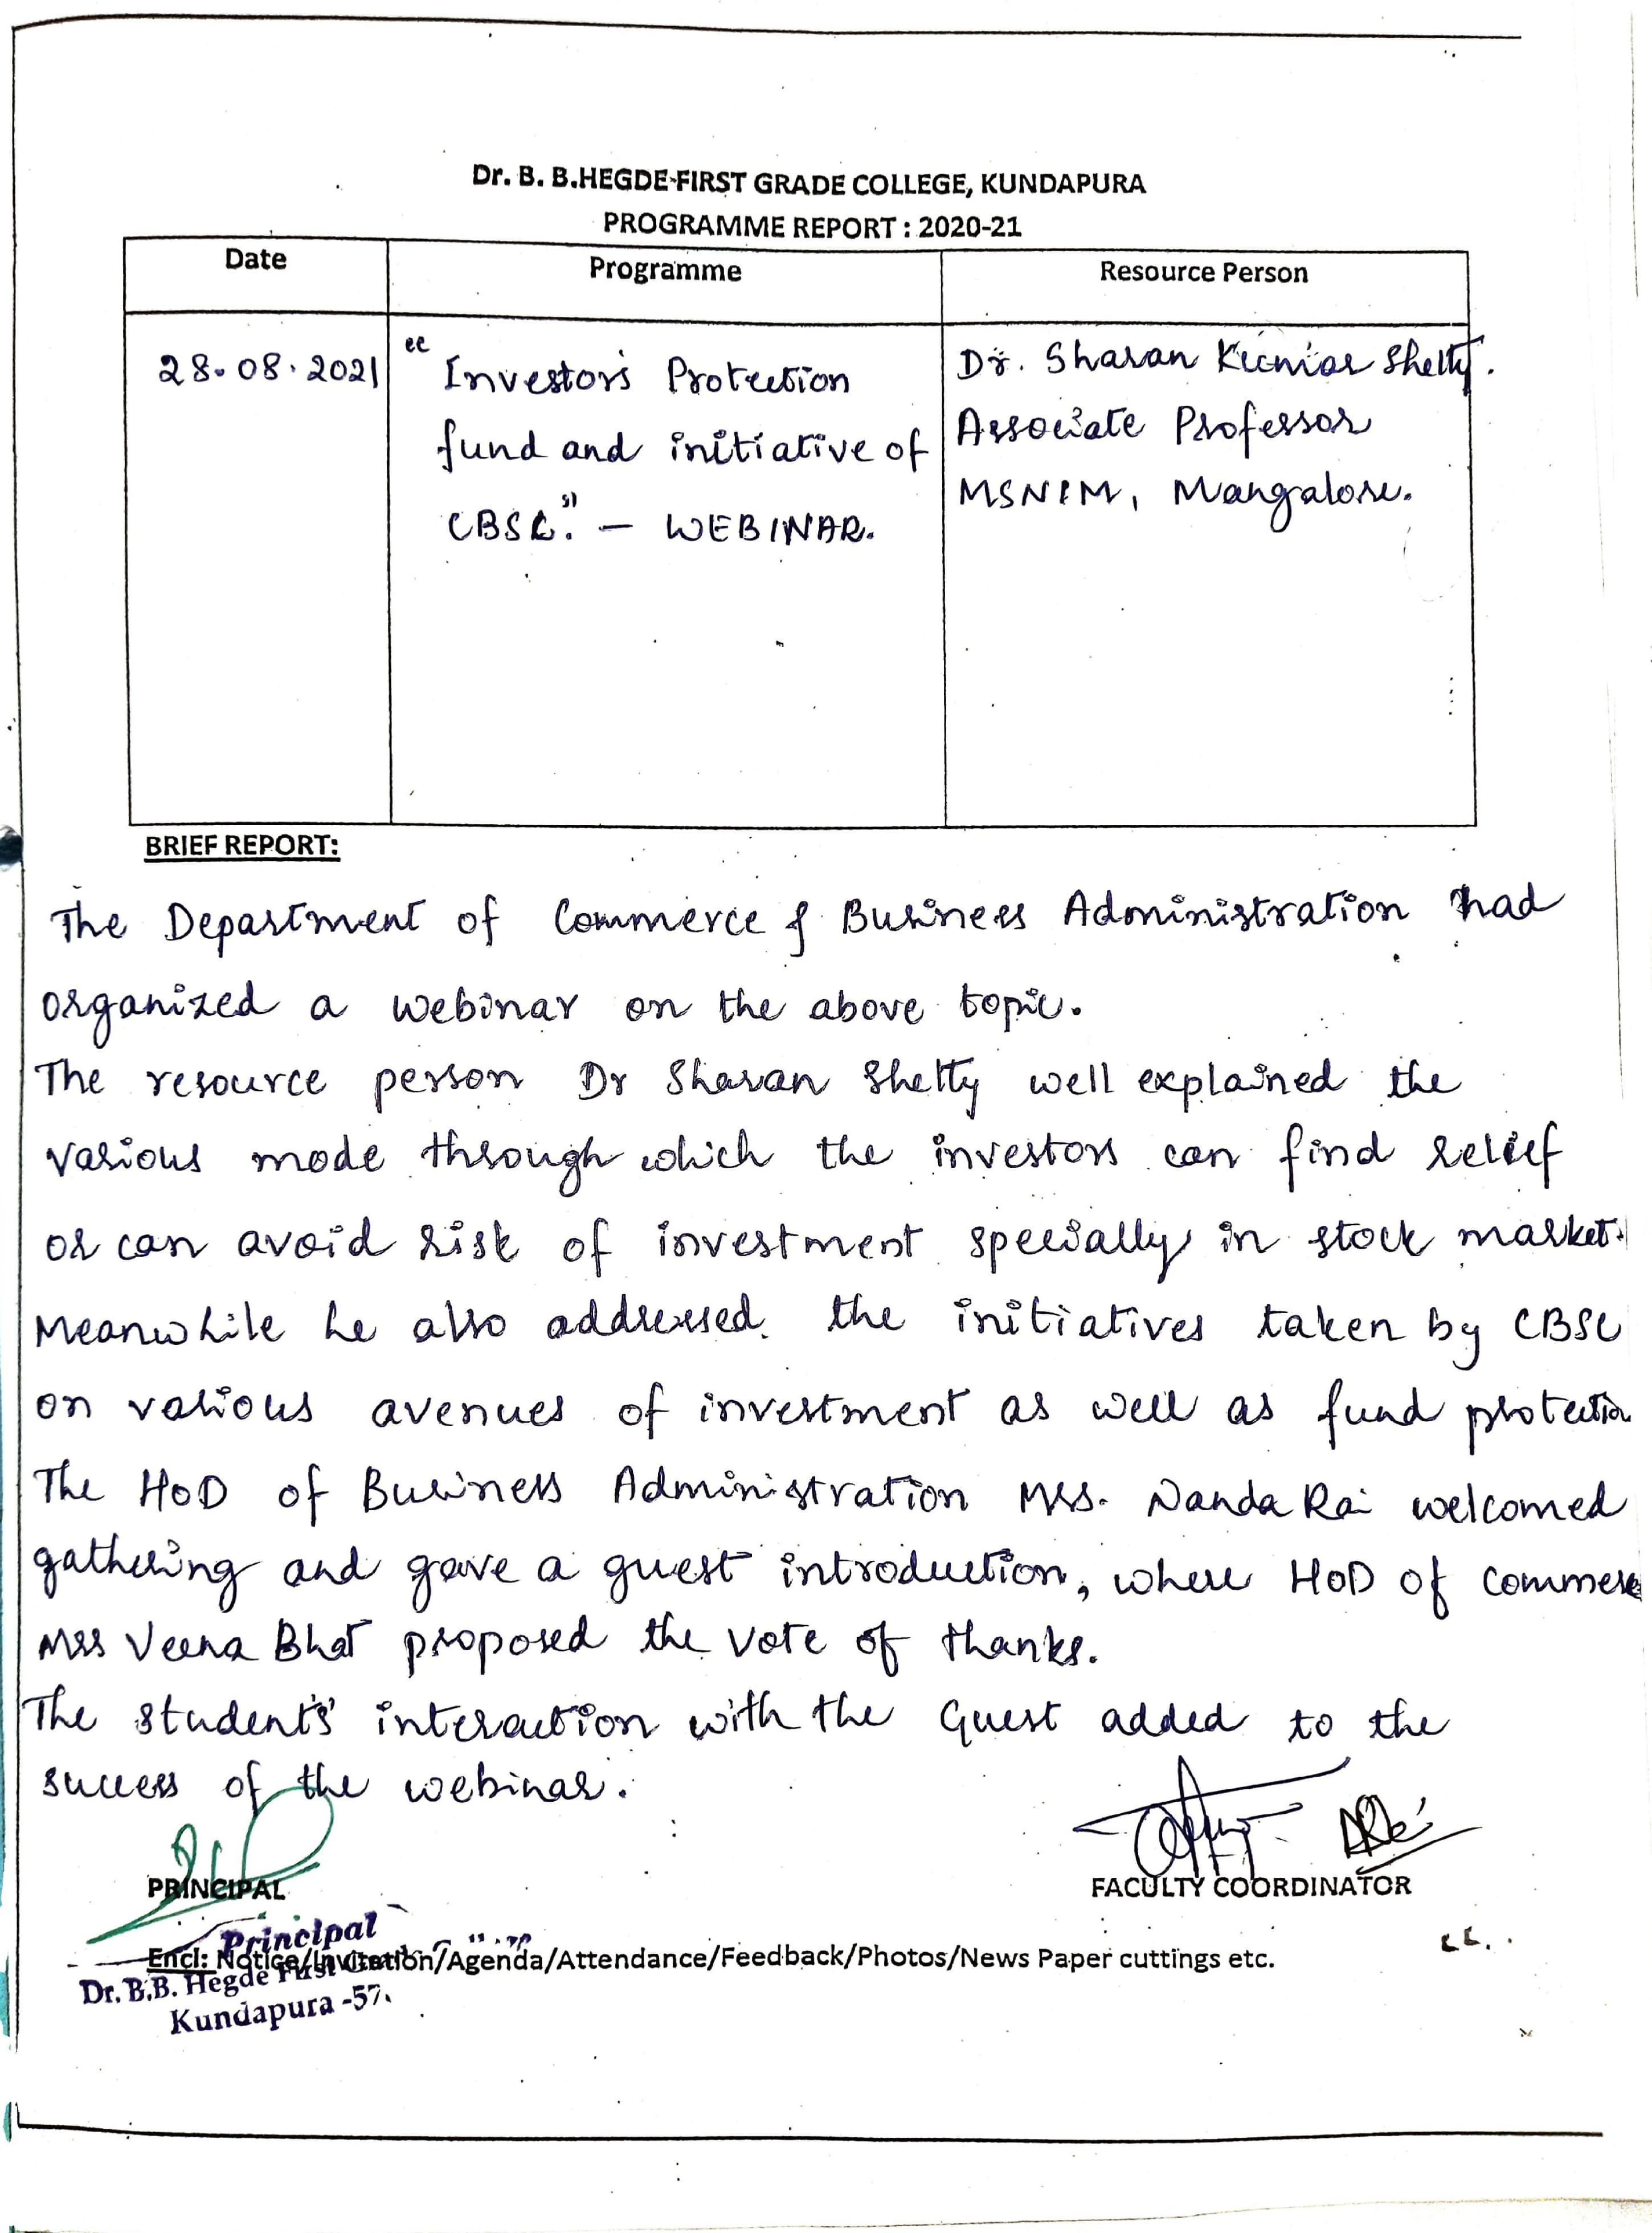 Dr. B. B.HEGDE FIRST GRADE COLLEGE, KUNDAPURA
PROGRAMME REPORT : 2020-21
Date Programme Resource Person
28.08.2021
"Investor's Protection
fund and initiative of
CBSC." – WEBINAR.
Dr. Sharan Kumar Shetty.
Associate Professor
MSNIM, Mangalore.
BRIEF REPORT:
The Department of Commerce & Business Administration had
organized a webinar on the above topic.
The resource person Dr Sharan Shetty well explained the
various mode through which the investors can find relief
or can avoid risk of investment specially in stock market.
Meanwhile he also addressed the initiatives taken by CBSC
on various avenues of investment as well as fund protection
The HOD of Business Administration Mrs. Nanda Rai welcomed
gathering and gave a guest introduction, where HOD of commerce
Mrs Veena Bhat proposed the vote of thanks.
The students' interaction with the Guest added to the
success of the webinar.
PRINCIPAL FACULTY COORDINATOR
Principal
Encl: Notice/Invitation/Agenda/Attendance/Feedback/Photos/News Paper cuttings etc.
Dr. B.B. Hegde First
Kundapura -57